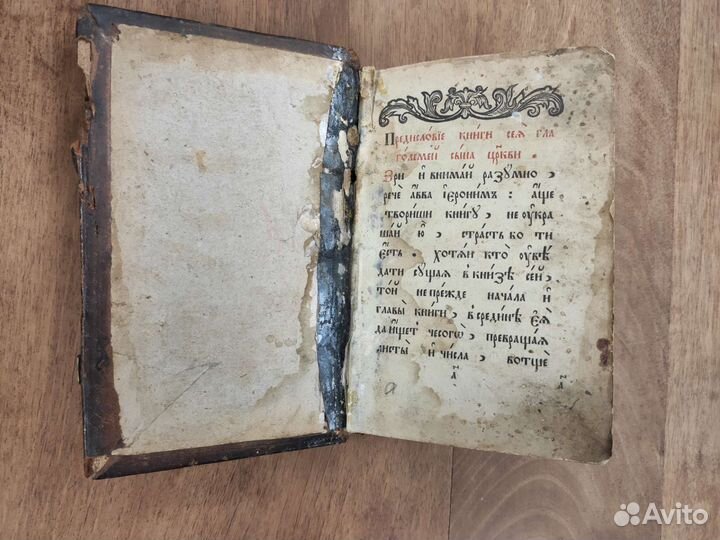 Предисло́вїе кни́ги сеѧ̀ гла
го́лемей сы́на цр҃кви .
Зрѝ и҆ внима́й разꙋ́мно ,
речѐ а҆́вва і҆ерони́мъ : а҆́ще
твори́ши кни́гꙋ , не оу҆кра
ша́й ю҆̀ , стра́сть бо ти
є҆́сть . хотѧ́й кто̀ оу҆вѣ́
дати сꙋ́щаѧ в кни́зѣ се́й
то́й не пре́жде нача́ла и҆
главы̀ кни́ги , в среди́нѣ є҆ѧ̀
да и҆́щет чесогѡ̀ , превраща́ѧ
листы̀ и҆ чи́сла , вотщѐ
а҃
а҃
Avito